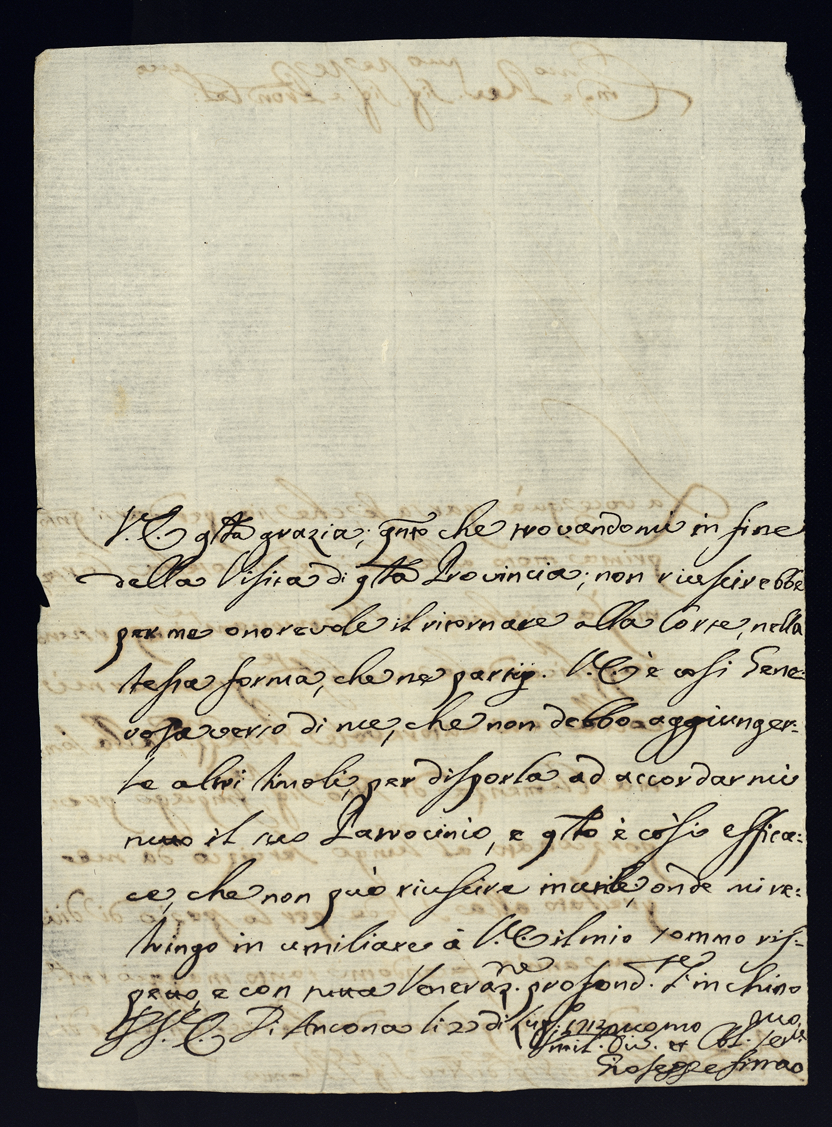 V.E. qsta grazia; qnto che trovandomi in fine
della Visita di qsta Provincia, non riuscirebbe
per me onorevole il ritornare alla Corte, nella
stessa forma, che ne partij. V.E. è così Gene-
rosa verso di me, che non debbo aggiunger-
le altri stimoli, per disporla ad accordarmi
tutto il suo Patrocinio, e qsto è così effica-
ce, che non può riuscire inutile, onde mi re-
stringo in umiliare à V.E. il mio sommo ris-
petto, e con tutta Veneraz.ne profond.te m'inchino
Di V.E. Di Ancona li 22 di Lug.o 1713
Umil. Div. et Obl. Ser.
Gioseppe Firrao